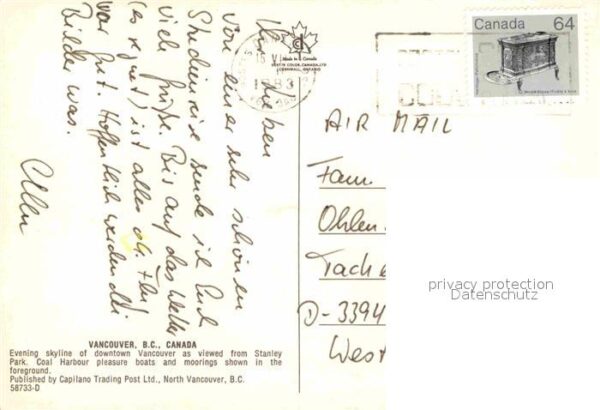 Ihr Lieben
Von einer sehr schönen
Studienreise sende ich Euch
viele Grüße. Bis auf das Wetter
(es regnet) ist alles o.k. Flug
war gut. Hoffentlich werden die
Bilder was.
Made in Canada
CORNWALL, ONTARIO
1983
Canada 64
AIR MAIL
Fam.
Ohlen
D-3394
West
privacy protection
Datenschutz
VANCOUVER, B.C., CANADA
Evening skyline of downtown Vancouver as viewed from Stanley
Park. Coal Harbour pleasure boats and moorings shown in the
foreground.
Published by Capilano Trading Post Ltd., North Vancouver, B.C.
58733-D